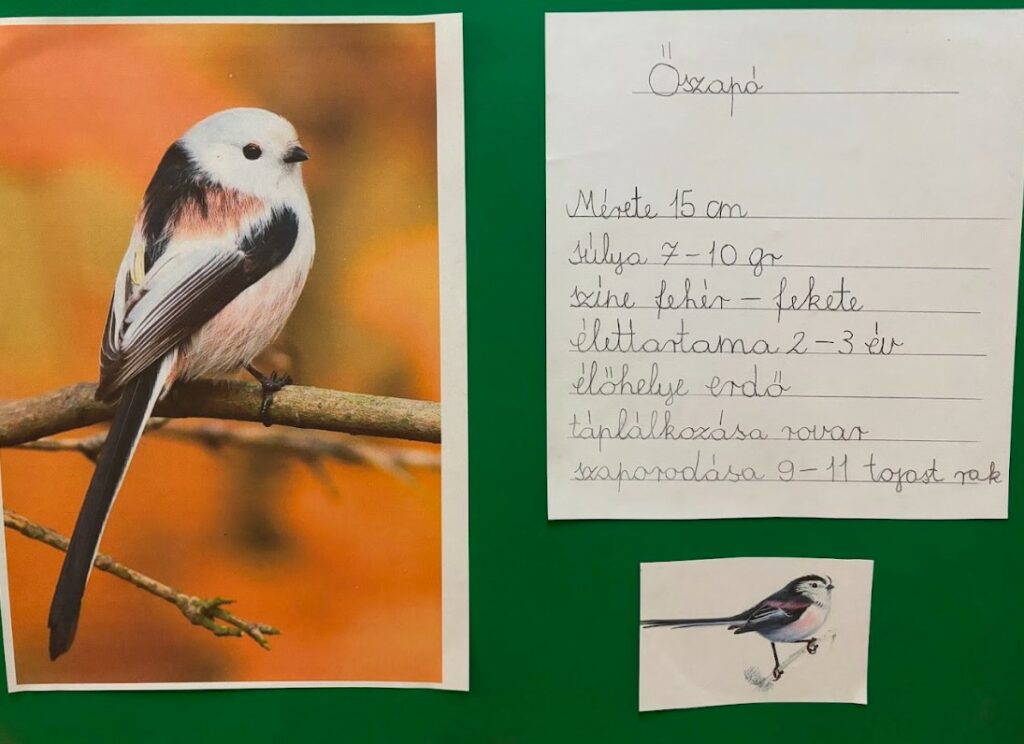 Őszapó
Mérete 15 cm
súlya 7-10 gr
színe fehér - fekete
élettartama 2-3 év
élőhelye erdő
táplálkozása rovar
szaporodása 9-11 tojast rak